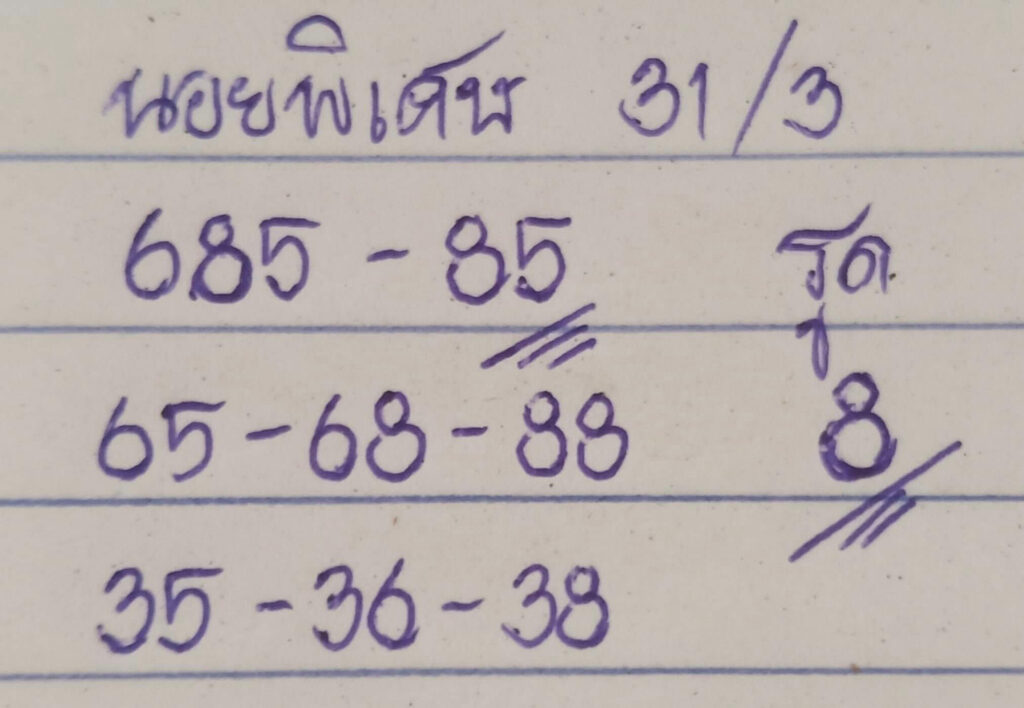 นอยพิเศษ 31/3
685 - 85 รูด
65 - 68 - 88 8
35 - 36 - 38